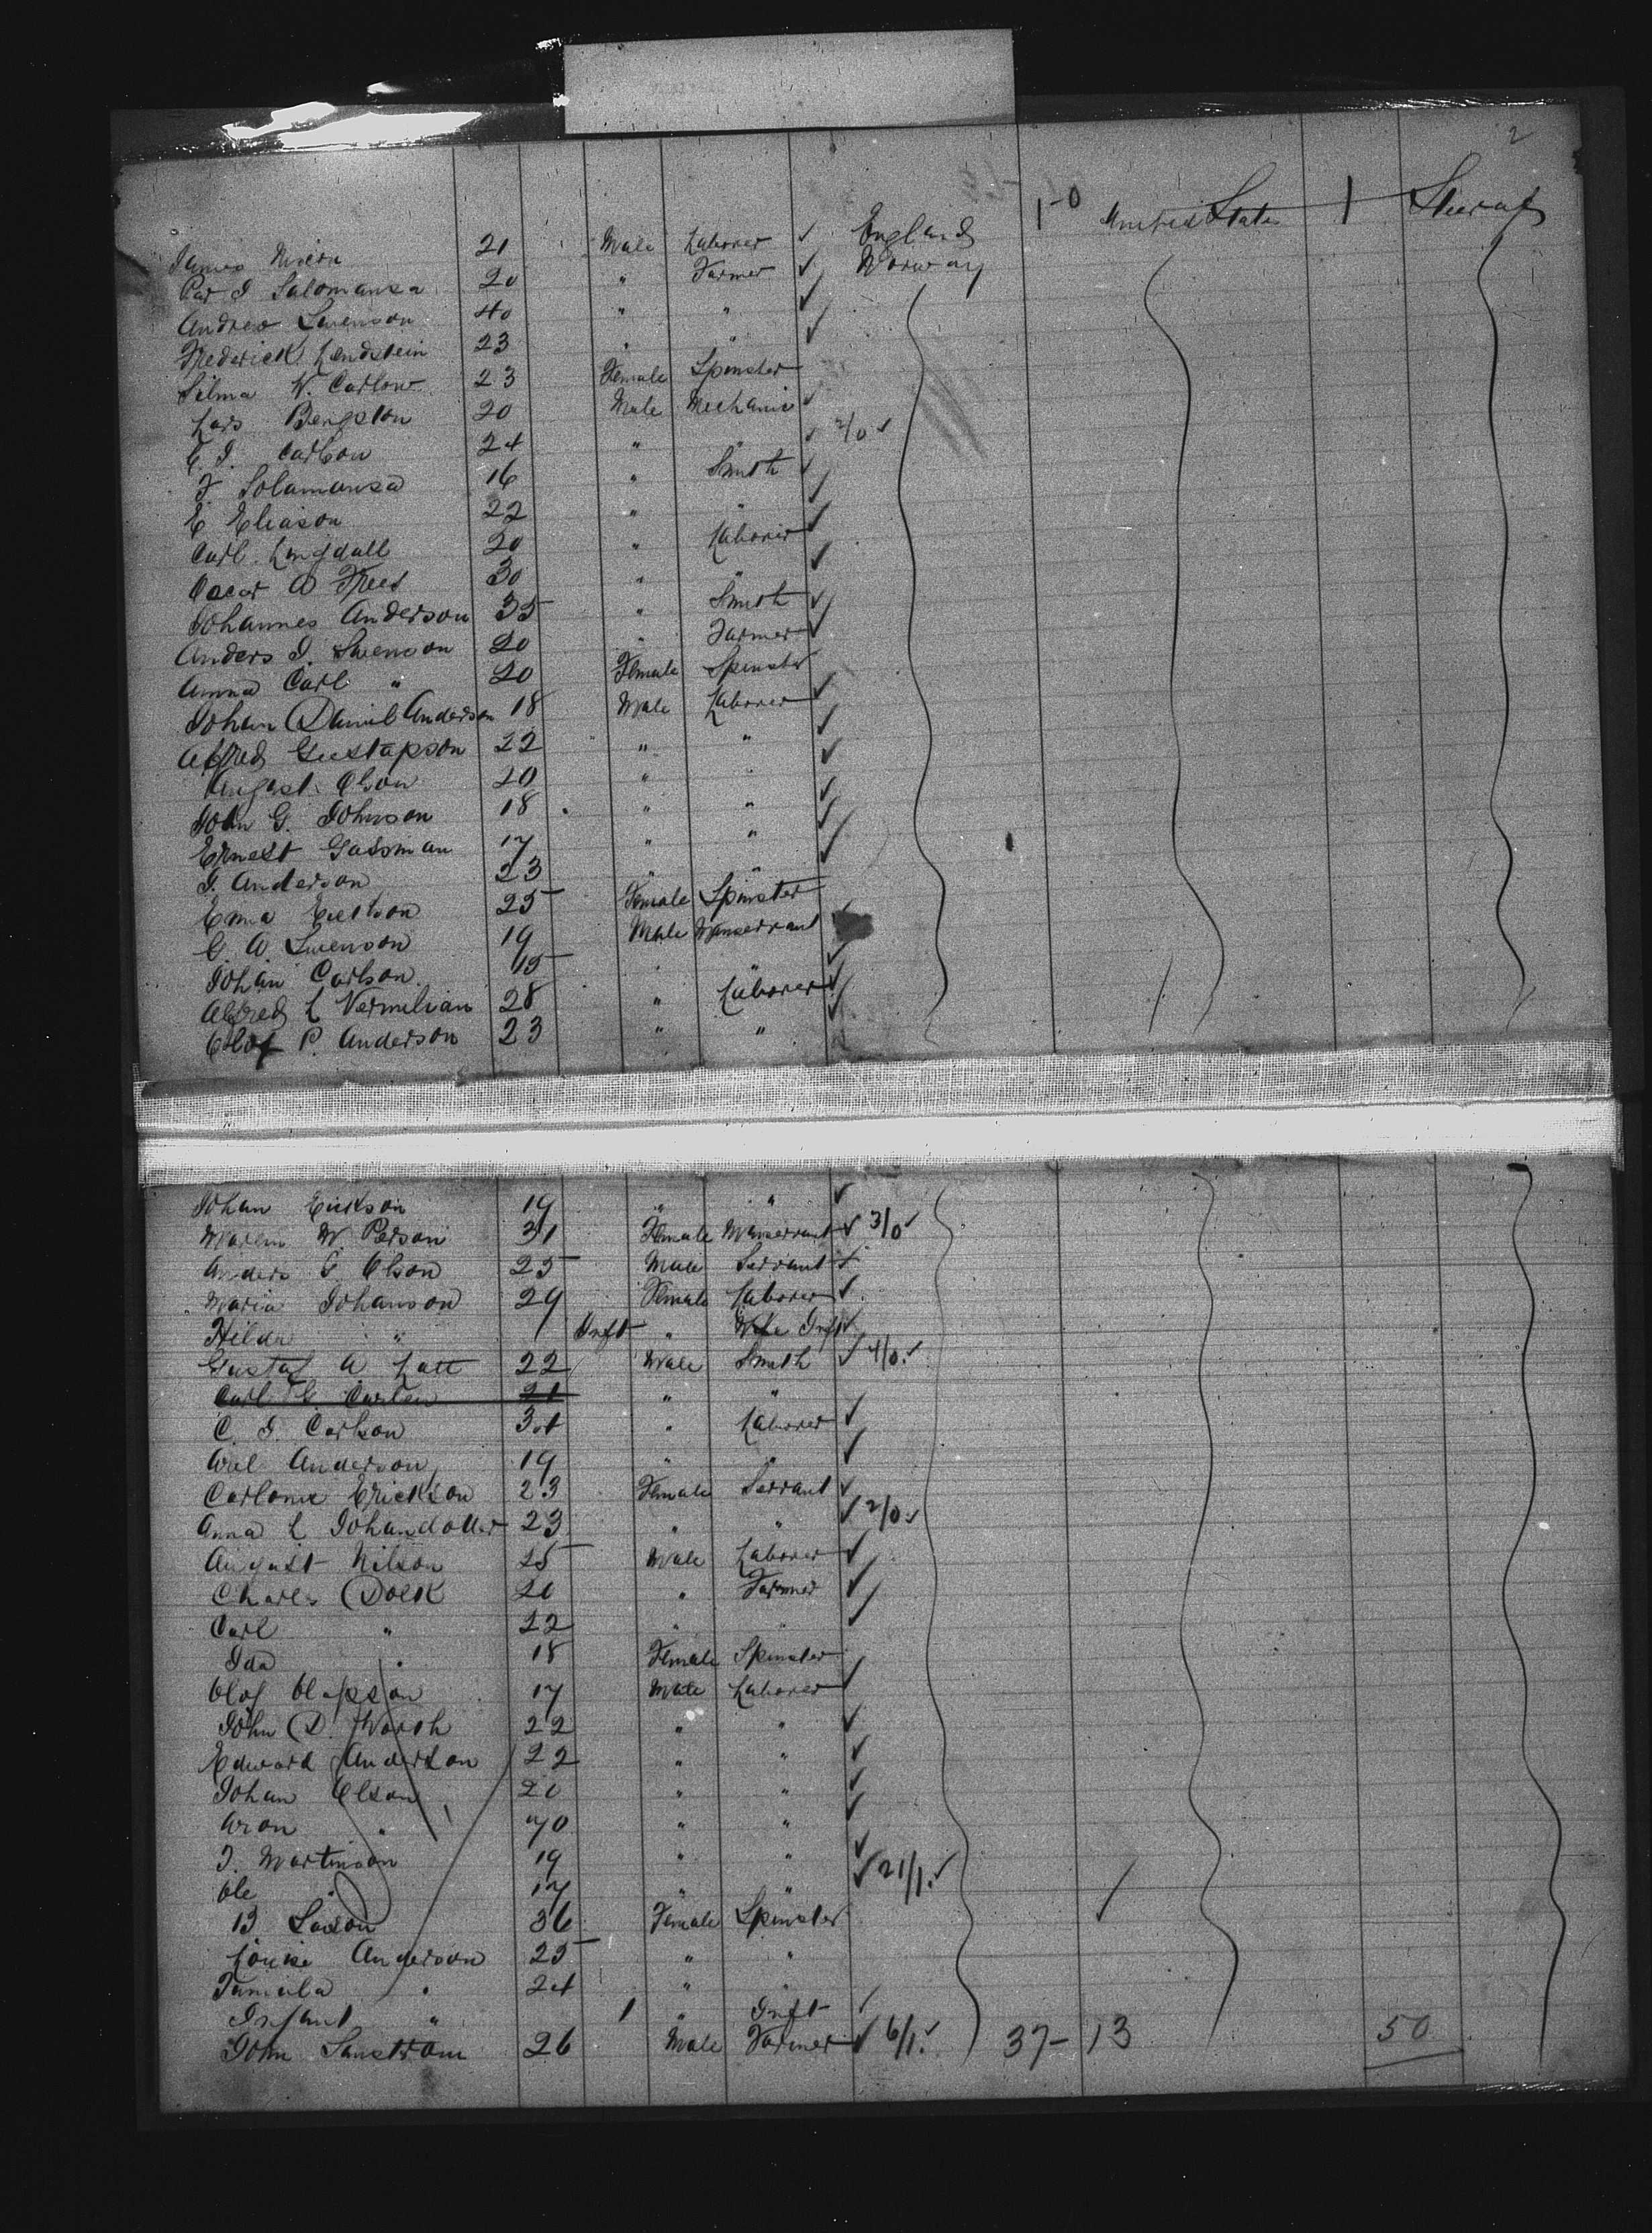 2
James Nixon 21 Male Laborer ✓ England 1-0 United States 1 Steerag
Par J Salomansa 20 " Farmer ✓ Norway
Andrew Swenson 40 " " ✓
Frederick Lendstein 23 " " ✓
Silma W. Carlson 23 Female Spinster
Lars Bengston 20 Male Mechanic ✓
E. J. Carlson 24 " " ✓ 2/0 ✓
F. Solamansa 16 " Smith ✓
E Eliason 22 " " ✓
Carl Lingdall 20 " Laborer ✓
Oscar A Frees 30 " " ✓
Johannes Anderson 35 " Smith ✓
Anders J. Swenson 20 " Farmer ✓
Anna Carl " 20 Female Spinster
Johan Daniel Anderson 18 Male Laborer ✓
Alfred Gustapson 22 " " ✓
August Olson 20 " " ✓
John G. Johnson 18 " " ✓
Ernest Gassman 17 " " ✓
J. Anderson 23 " " ✓
Emma Erickson 25 Female Spinster
G. A. Swenson 19 Male Manservant
Johan Carlson 15 " " ✓
Alfred L Vermelian 28 " Laborer ✓
Olof P. Anderson 23 " " ✓
Johan Erickson 19 " " ✓
W. Person 31 Female Manservant ✓ 3/0 ✓
Anders G. Olson 25 Male Servant ✓
Maria Johanson 29 Female Laborer ✓
Hilda " Inft " Inft ✓
Gustaf A Latt 22 Male Smith ✓ 4/0 ✓
Carl G. Carlson 21 " "
C. J. Carlson 34 " Laborer ✓
Anderson 19 " " ✓
Erickson 23 Female Servant ✓
Anna L Johandotter 23 " " ✓ 2/0 ✓
August Nilson 25 Male Laborer ✓
Charles Dolk 20 " Farmer ✓
Carl " 22 " " ✓
Ida " 18 Female Spinster
Olof Olapson 17 Male Laborer ✓
John D. Worth 22 " " ✓
Edward Anderson 22 " " ✓
Johan Olson 20 " " ✓
Aron " 70 " " ✓
J. Martinson 19 " " ✓
Ole " 17 " " ✓ 21/1 ✓
B 36 Female Spinster
Louise Anderson 25 " "
" 24 " "
Infant " 1 " Inft ✓
John Sanstrom 26 Male Farmer ✓ 6/1 ✓ 37-13 50